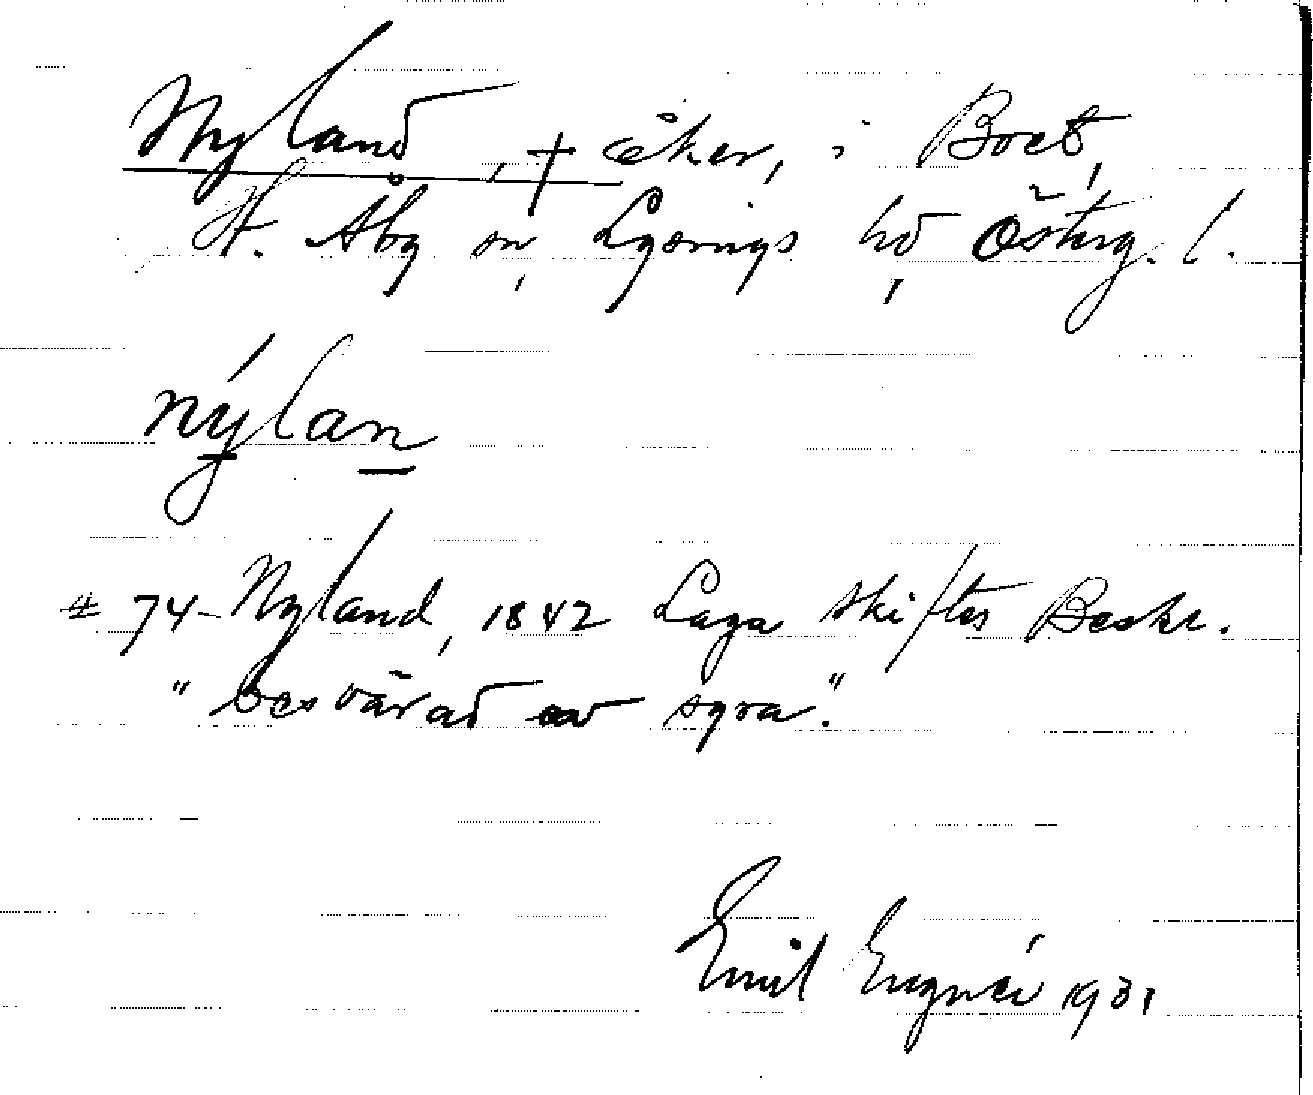 Nyland, † åker, i Boet,
V. Aby sn, Lysings hd Österg. l.
nýlan
# 74 Nyland, 1842 Laga skiftes Beskr.
" besvärad av syra."
Emil Engnér 1931